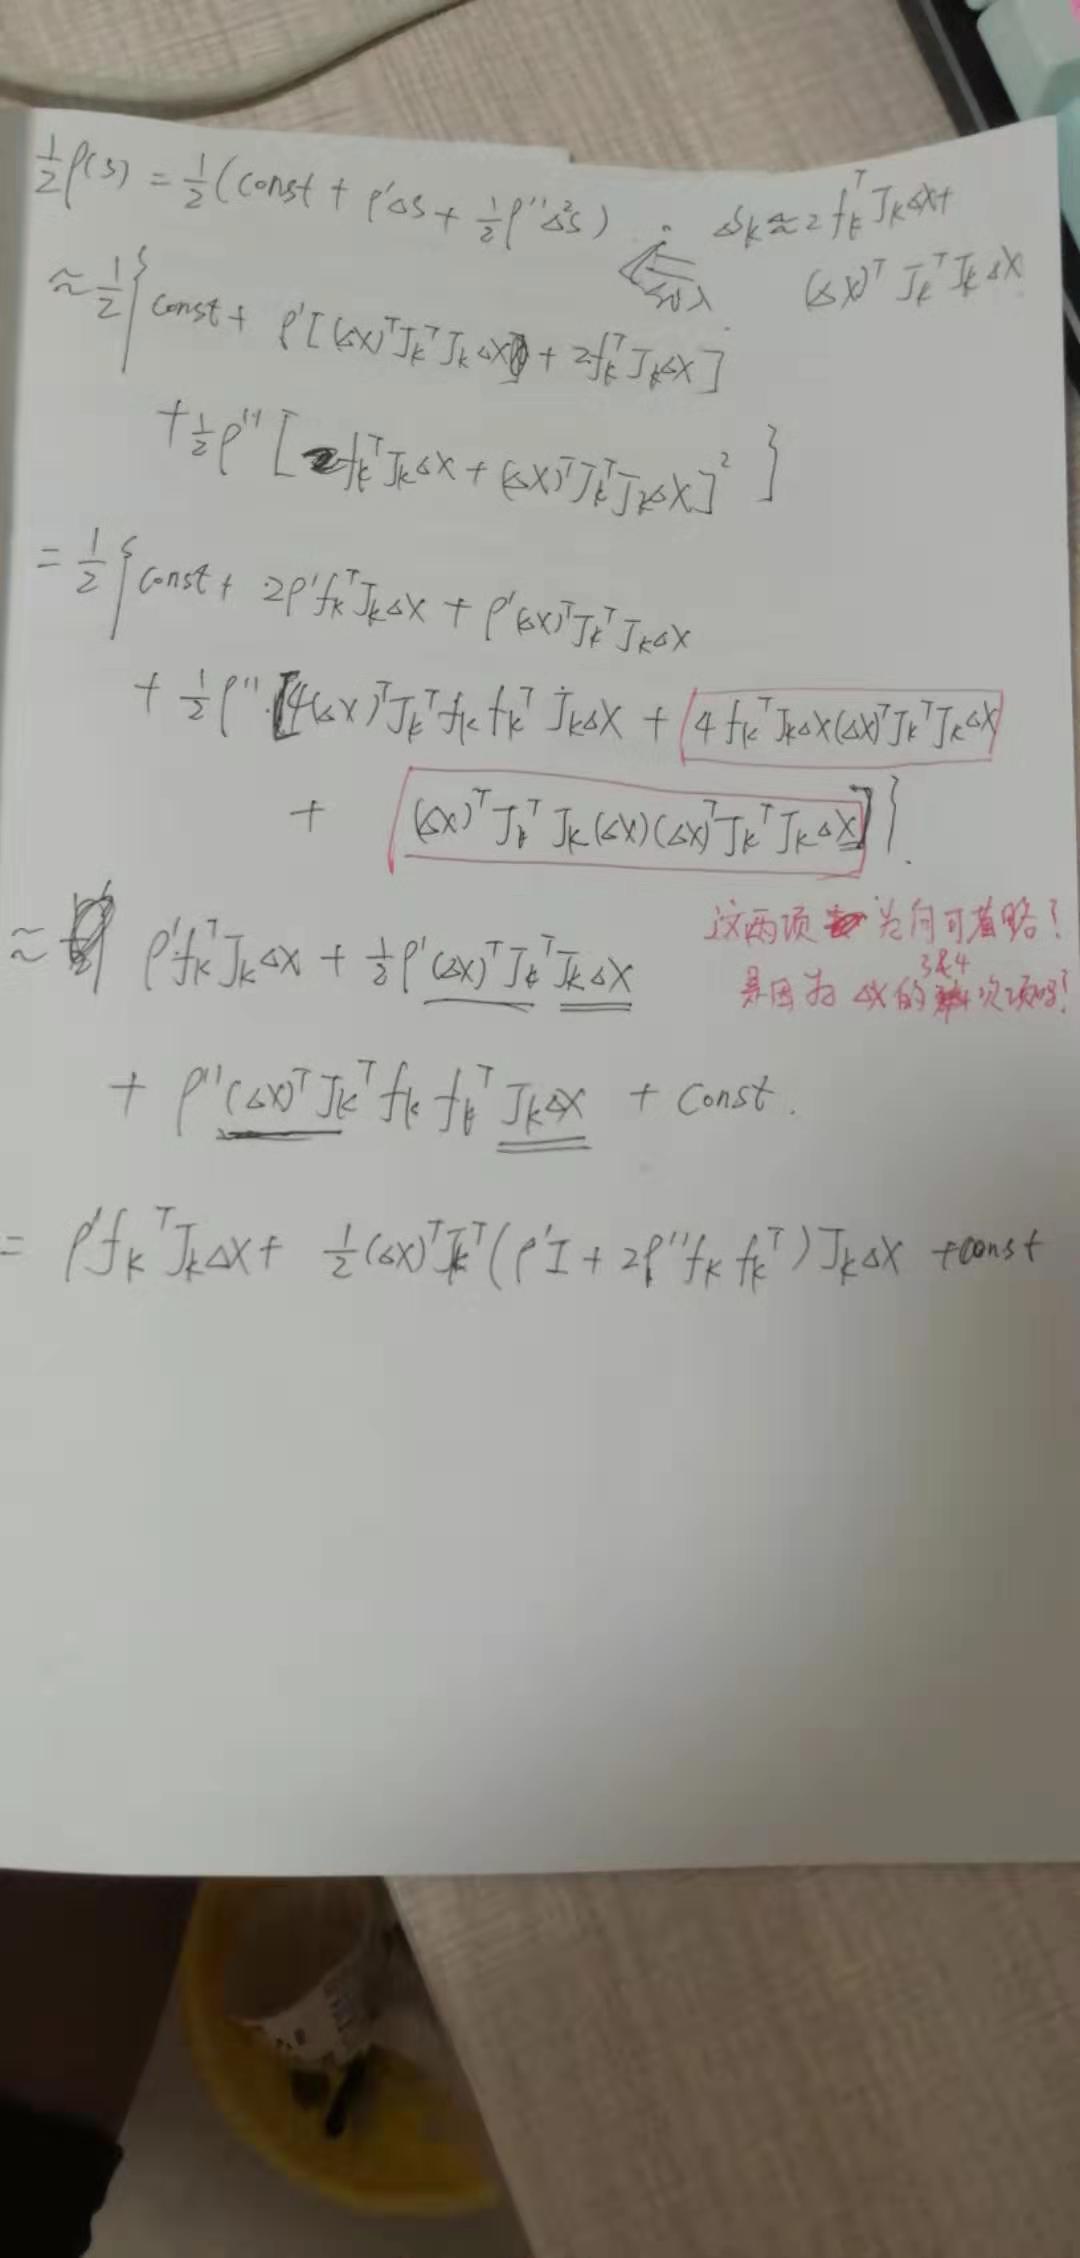 ½ρ(s) = ½(const + ρ'Δs + ½ρ''Δ²s) . Δs_k ≈ 2f_k^T J_k Δx +
(Δx)^T J_k^T J_k Δx
≈ ½{const + ρ'[(Δx)^T J_k^T J_k Δx + 2f_k^T J_k Δx]
+ ½ρ''[2f_k^T J_k Δx + (Δx)^T J_k^T J_k Δx]² }
= ½{const + 2ρ'f_k^T J_k Δx + ρ'(Δx)^T J_k^T J_k Δx
+ ½ρ''·[4(Δx)^T J_k^T f_k f_k^T J_k Δx + 4f_k^T J_k Δx(Δx)^T J_k^T J_k Δx
+ (Δx)^T J_k^T J_k (Δx)(Δx)^T J_k^T J_k Δx]}.
这两项为何可省略?
是因为 Δx的3&4次项吗?
≈ ρ'f_k^T J_k Δx + ½ρ'(Δx)^T J_k^T J_k Δx
+ ρ''(Δx)^T J_k^T f_k f_k^T J_k Δx + const.
= ρ'f_k^T J_k Δx + ½(Δx)^T J_k^T(ρ'I + 2ρ''f_k f_k^T)J_k Δx + const